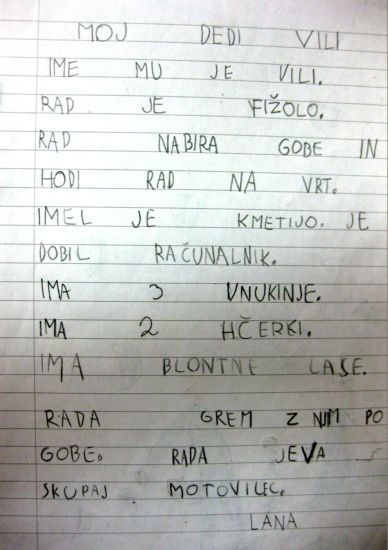 MOJ DEDI VILI
IME MU JE VILI.
RAD JE FIŽOLO.
RAD NABIRA GOBE IN
HODI RAD NA VRT.
IMEL JE KMETIJO. JE
DOBIL RAČUNALNIK.
IMA 3 VNUKINJE.
IMA 2 HČERKI.
IMA BLONTNE LASE.
RADA GREM Z NJIM PO
GOBE. RADA JEVA
SKUPAJ MOTOVILEC.
LANA